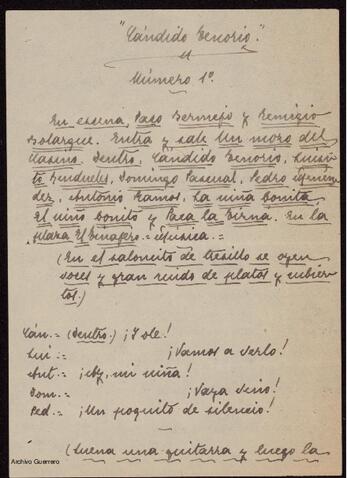 "Cándido Tenorio".
Número 1º.
En escena, Paco Bermejo y Remigio
Bolarque. Entra y sale Un mozo del
Casino. Dentro, Cándido Tenorio, Luisi-
to Benduelez, Domingo Pascual, Pedro
dez, Antonio Ramos, La niña Bonita
El niño Bonito y Paca la Birria. En la
plaza El Viñagero. = Música. =
(En el saloncito de tresillo se oyen
voces y gran ruido de platos y cubier-
tos.)
Cán.= (Dentro.) ¡Y ole!
Lui.= ¡Vamos a verlo!
Ant.= ¡Ay, mi niña!
Dom.= ¡Vaya vino!
Ped.= ¡Un poquito de silencio!
(Suena una guitarra y luego la
Archivo Guerrero